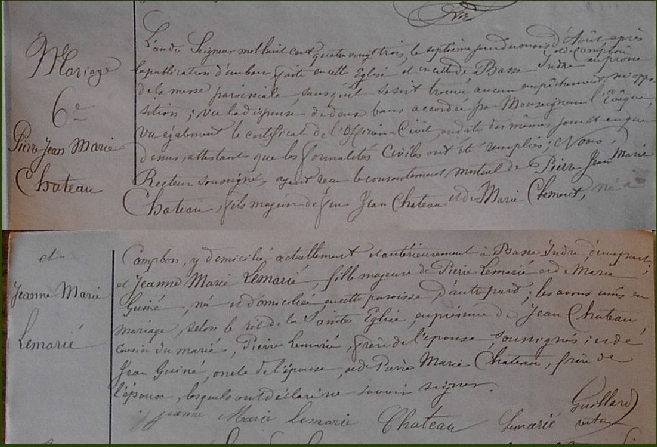 Mariage
6e
Pierre Jean Marie
Chateau
L'an du Seigneur mil huit cent quatre vingt trois, le septième jour du mois d'Août après
la publication d'un ban, faite en cette Eglise et en celle de Basse Indre et de Campbon, au prone
de la messe paroissiale, sans qu'il se soit trouvé aucun empêchement, ni oppo
sition; vu la dispense de deux bans accordée par Monseigneur l'Evêque,
vu également le certificat de l'Officier Civil en date du même jour et an que
dessus, attestant que les formalités Civiles ont été remplies; Nous,
Recteur soussigné, ayant reçu le consentement mutuel de Pierre Jean Marie
Chateau, fils majeur de feu Jean Chateau et de Marie Clement, né à
et
Jeanne Marie
Lemarié
Campbon, y domicilié actuellement et antérieurement à Basse Indre, d'une part;
et Jeanne Marie Lemarié, fille majeure de Pierre Lemarié et de Marie
Guiné, née et domiciliée en cette paroisse d'autre part; les avons unis en
mariage, selon le rit de la Sainte Église, en présence de Jean Chateau,
cousin du marié, Pierre Lemarié, frère de l'épouse soussignés; et de
Jean Guiné, oncle de l'épouse, et de Pierre Marie Chateau, frère de
l'époux, lesquels ont déclaré ne savoir signer.
Jeanne Marie Lemarie Chateau Lemarié Guillard